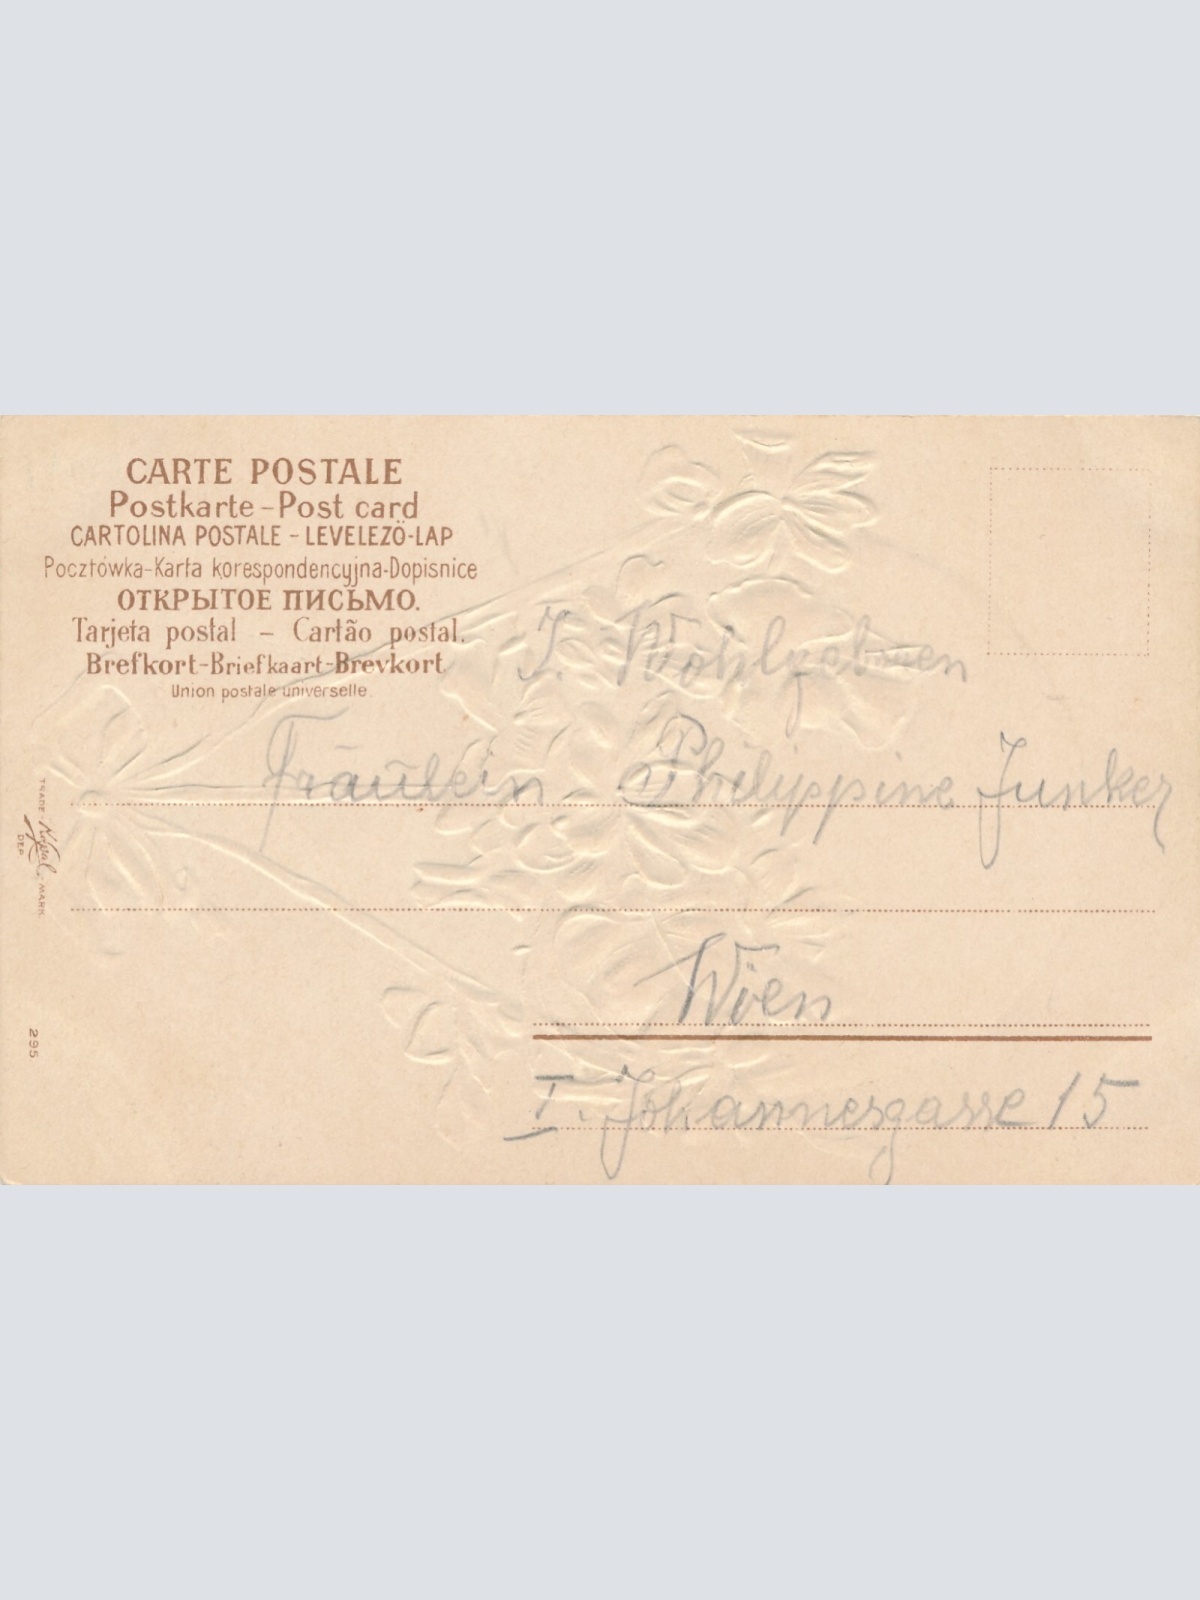 CARTE POSTALE
Postkarte-Post card
CARTOLINA POSTALE - LEVELEZÖ-LAP
Pocztówka-Karta korespondencyjna-Dopisnice
ОТКРЫТОЕ ПИСЬМО.
Tarjeta postal - Cartão postal.
Brefkort-Briefkaart-Brevkort
Union postale universelle.
I. Wohlgeboren
Fräulein Philippine Junker
Wien
I. Johannesgasse 15
TRADE MARK
DEP.
295